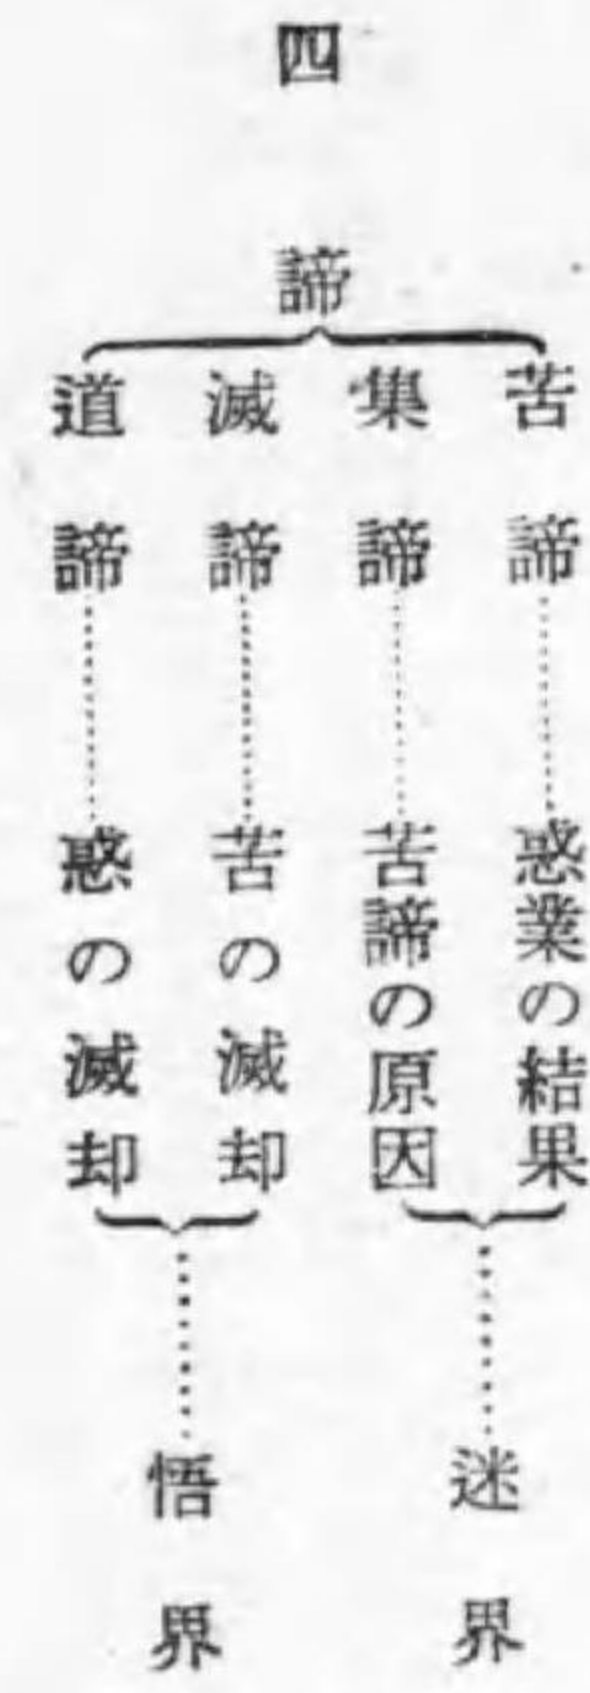 四諦
苦諦……惑業の結果
集諦……苦諦の原因
迷界
滅諦……苦の滅却
道諦……惑の滅却
悟界